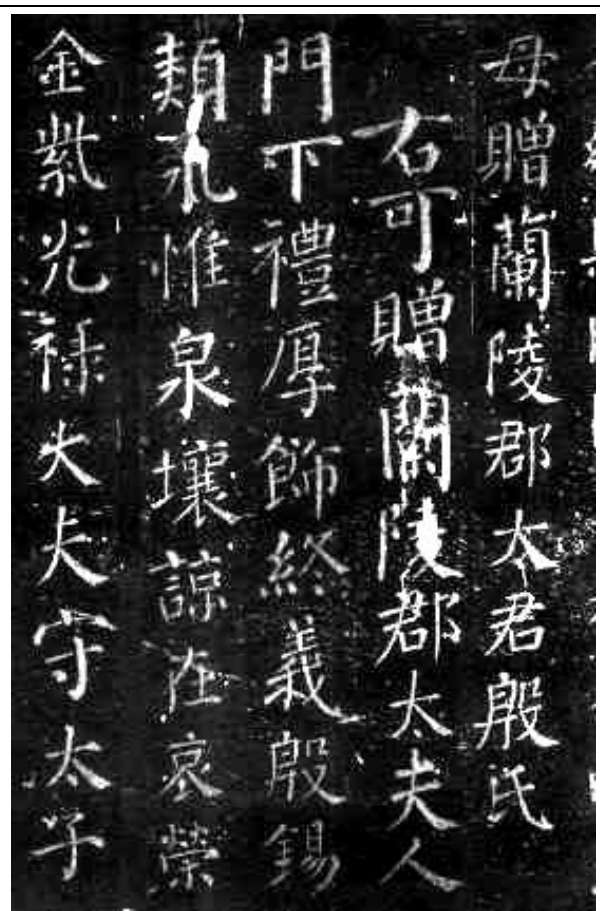 母贈蘭陵郡太君殷氏
右可贈蘭陵郡太夫人
門下禮厚飾終義殷錫
類永惟泉壤諒在哀榮
金紫光祿大夫守太子